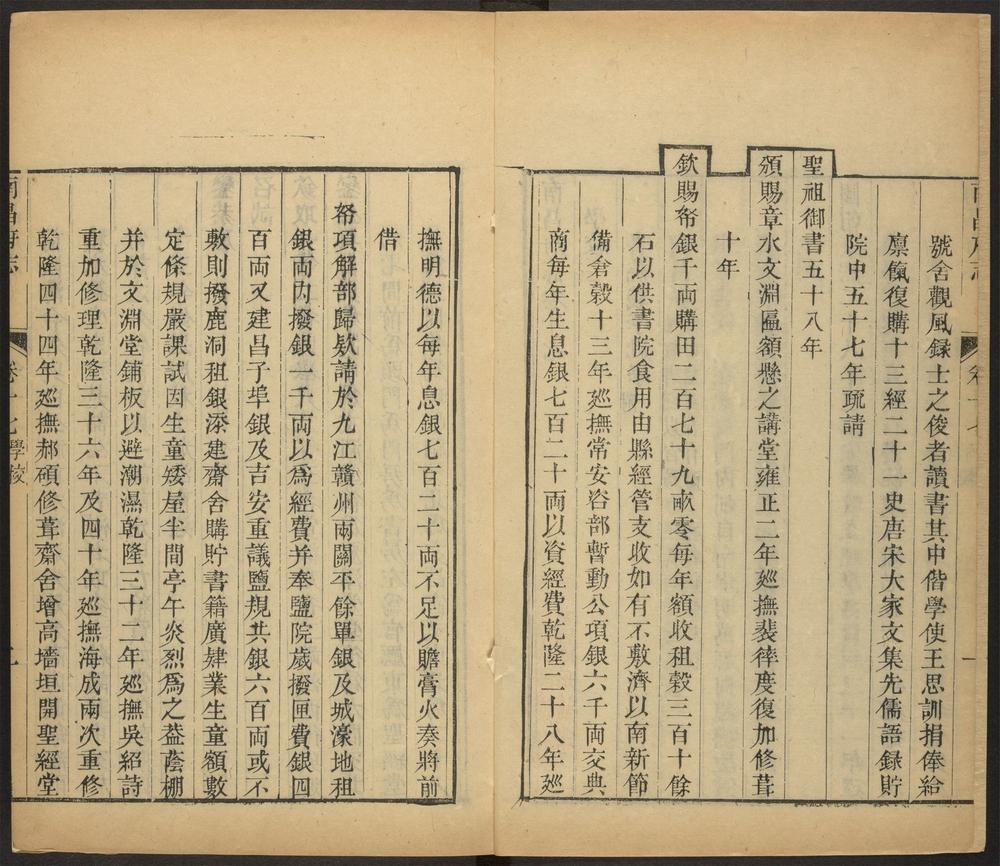 南昌府志
卷十七
號舍觀風錄士之俊者讀書其中偕學使王思訓捐俸給
廪餼復購十三經二十一史唐宋大家文集先儒語錄貯
院中五十七年疏請
聖祖御書五十八年
頒賜章水文淵匾額懸之講堂雍正二年廵撫裴㣮度復加修葺
十年
欽賜帑銀千両購田二百七十九畝零每年額收租穀三百十餘
石以供書院食用由縣經管支收如有不敷濟以南新節
備倉穀十三年廵撫常安咨部暫動公項銀六千両交典
商每年生息銀七百二十両以資經費乾隆二十八年廵
撫明德以每年息銀七百二十両不足以贍膏火奏將前
借
帑項解部歸欵請於九江贛州兩關平餘單銀及城濠地租
銀両內撥銀一千両以爲經費并奉鹽院歲撥匣費銀四
百両又建昌子埠銀及吉安重議鹽規共銀六百両或不
敷則撥鹿洞租銀添建齋舍購貯書籍廣肄業生童額數
定條規嚴課試因生童矮屋半間亭午炎烈爲之葢蔭棚
并於文淵堂鋪板以避潮濕乾隆三十二年廵撫吳紹詩
重加修理乾隆三十六年及四十年廵撫海成兩次重修
乾隆四十四年廵撫郝碩修葺齋舍增高墻垣開聖經堂
南昌府志
卷十七 學校